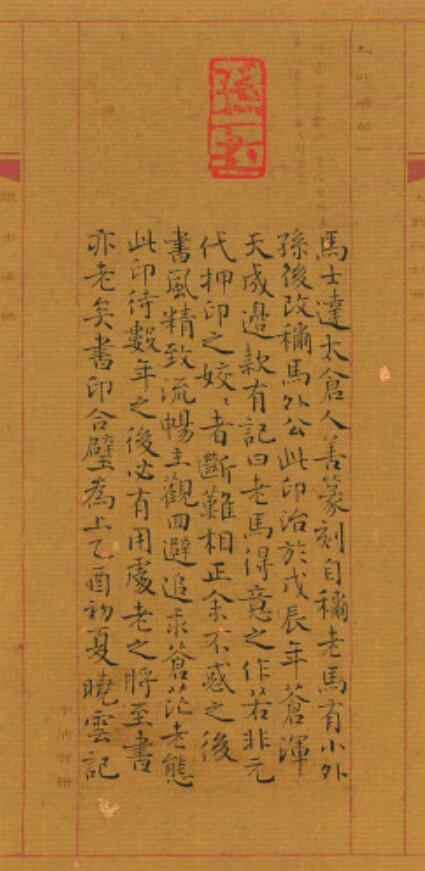 馬士達太倉人善篆刻自稱老馬有小外
孫後改稱馬外公此印治於戊辰年蒼渾
天成邊款有記曰老馬得意之作若非元
代押印之姣〻者斷難相正余不惑之後
書風精致流暢主觀回避追求蒼茫老態
此印待數年之後必有用處老之將至書
亦老矣書印合璧為上乙酉初夏曉雲記